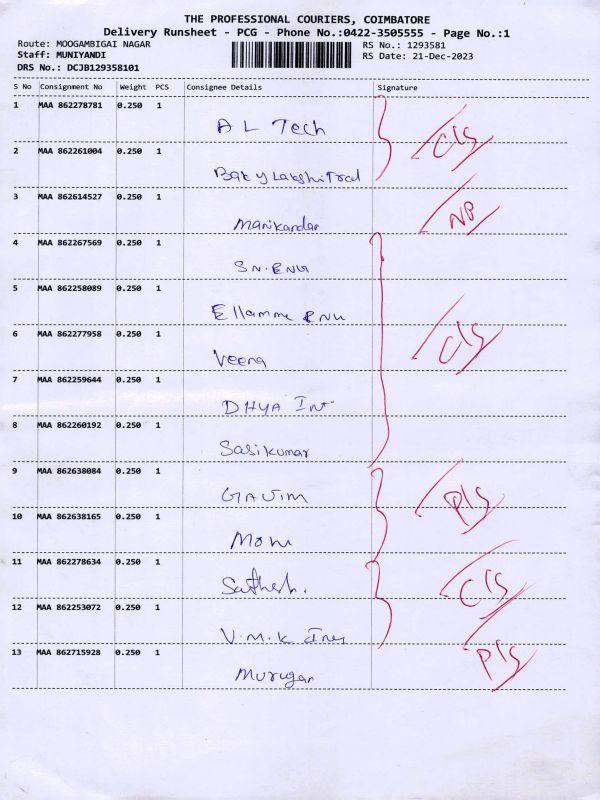 THE PROFESSIONAL COURIERS, COIMBATORE
Delivery Runsheet - PCG - Phone No.:0422-3505555 - Page No.:1
Route: MOOGAMBIGAI NAGAR RS No.: 1293581
Staff: MUNIYANDI RS Date: 21-Dec-2023
DRS No.: DCJB129358101
S No Consignment No Weight PCS Consignee Details Signature
1 MAA 862278781 0.250 1
A L Tech
C/S
2 MAA 862261004 0.250 1
3 MAA 862614527 0.250 1
NP
Manikandan
4 MAA 862267569 0.250 1
5 MAA 862258089 0.250 1
Ellamme
6 MAA 862277958 0.250 1
C/S
Veena
7 MAA 862259644 0.250 1
DHYA Int
8 MAA 862260192 0.250 1
Sasikumar
9 MAA 862638084 0.250 1
P/S
10 MAA 862638165 0.250 1
11 MAA 862278634 0.250 1
C/S
Sathesh.
12 MAA 862253072 0.250 1
V.M.K
13 MAA 862715928 0.250 1
P/S
Murugan